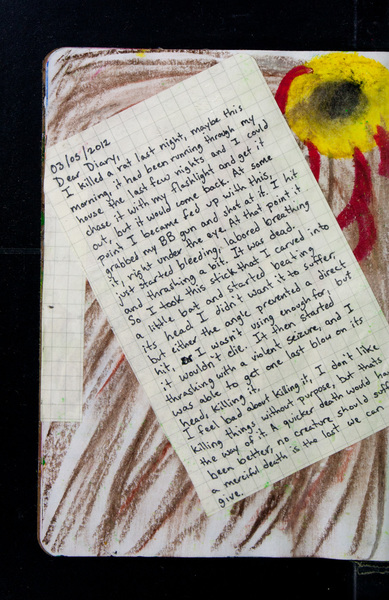 03/05/2012
Dear Diary,
I killed a rat last night, maybe this
morning, it had been running through my
house the last few nights and I could
chase it with my flashlight and get it
out, but it would come back. At some
point I became fed up with this,
grabbed my BB gun and shot at it. I hit
it, right under the eye. At that point it
just started bleeding, labored breathing
and thrashing a bit. It was dead.
So I took this stick that I carved into
a little boat and started beating
its head, I didn't want it to suffer,
but either the angle prevented a direct
hit, or I wasn't using enough force, but
it wouldn't die. It then started
thrashing with a violent seizure, and I
was able to get one last blow on its
head, killing it.
I feel bad about killing it, I don't like
killing things without purpose, but that's
the way of it. A quicker death would have
been better, no creature should suffer
a merciful death is the last we can
give.